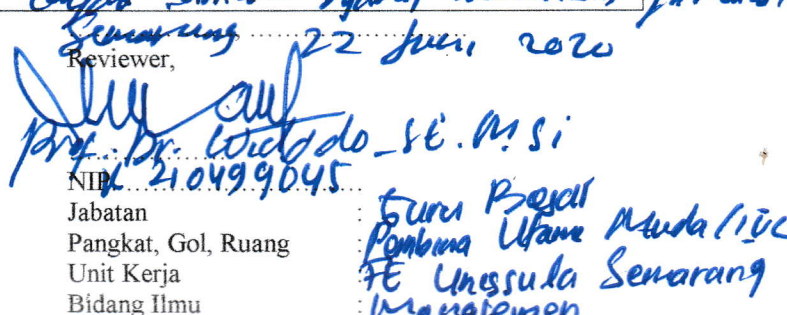 Semarang 22 Juni 2020
Reviewer,
Prof. Dr. Widodo_SE. M.Si
NIK 210499045
Jabatan : Guru Besar
Pangkat, Gol, Ruang : Pembina Utama Muda/IVC
Unit Kerja : FE Unissula Semarang
Bidang Ilmu : Manajemen